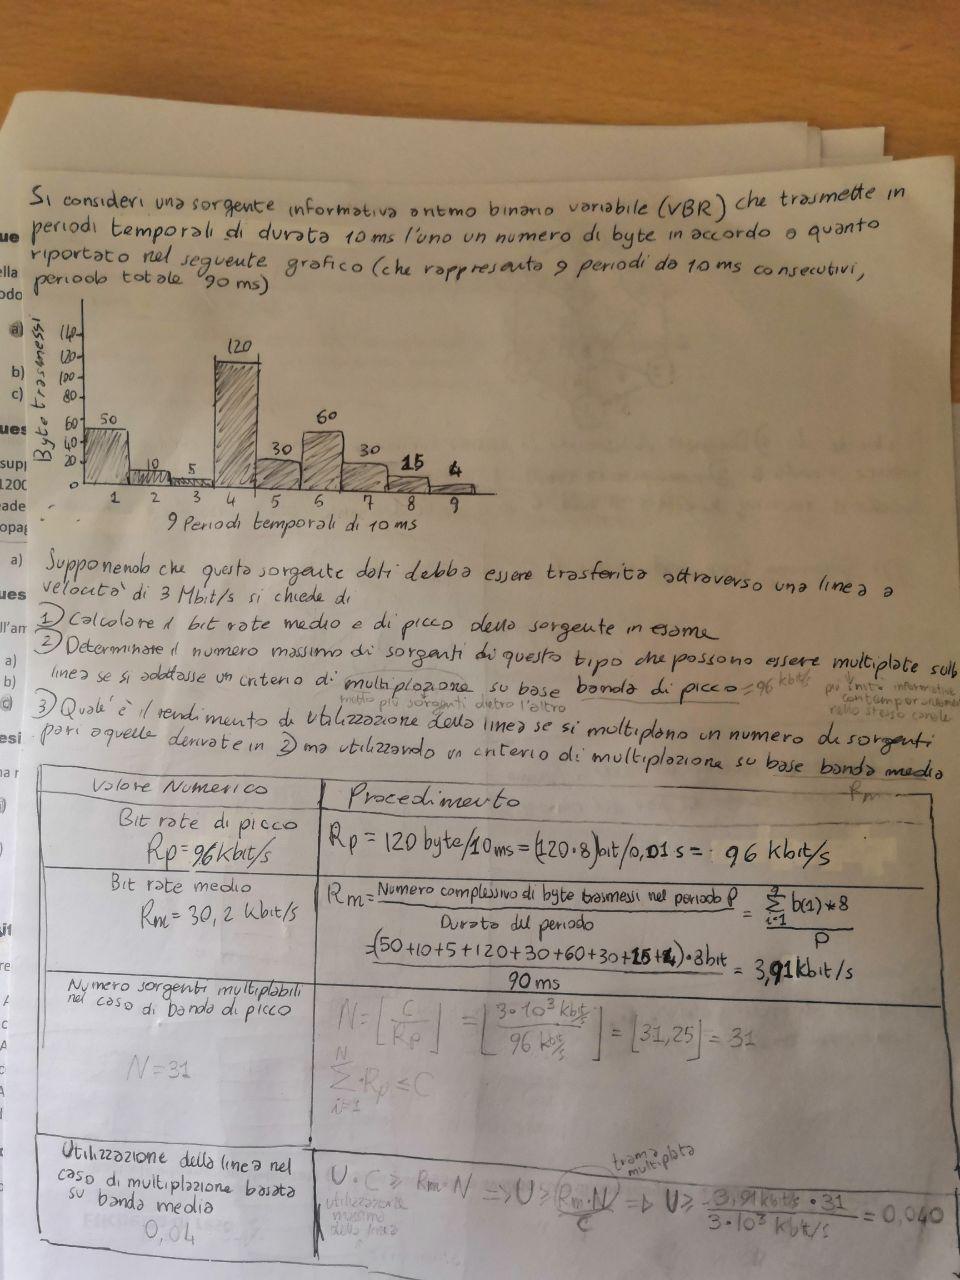 Si consideri una sorgente informativa a ritmo binario variabile (VBR) che trasmette in
periodi temporali di durata 10 ms l'uno un numero di byte in accordo a quanto
riportato nel seguente grafico (che rappresenta 9 periodi da 10 ms consecutivi,
periodo totale 90 ms)
Byte trasmessi
140
120
100
80
60
40
20
0
50
10
5
120
30
60
30
15
4
1 2 3 4 5 6 7 8 9
9 Periodi temporali di 10 ms
Supponendo che questa sorgente dati debba essere trasferita attraverso una linea a
velocità di 3 Mbit/s si chiede di
1) Calcolare il bit rate medio e di picco della sorgente in esame
2) Determinare il numero massimo di sorgenti di questo tipo che possono essere multiplate sulla
linea se si adottasse un criterio di multiplazione su base banda di picco = 96 kbit/s
più unità informative
contemporaneamente
nello stesso canale
metto più sorgenti dietro l'altro
3) Qual'è il rendimento di utilizzazione della linea se si multiplano un numero di sorgenti
pari a quelle derivate in 2) ma utilizzando un criterio di multiplazione su base banda media
Rm
Valore Numerico
Procedimento
Bit rate di picco
Rp = 96 kbit/s
Rp = 120 byte/10 ms = (120·8)bit/0,01 s = 96 kbit/s
Bit rate medio
Rm = 30,2 kbit/s
Rm = Numero complessivo di byte trasmessi nel periodo P / Durata del periodo = 9 ∑ i=1 b(1)*8 / P
= (50+10+5+120+30+60+30+15+4)·8bit / 90 ms = 3,91 kbit/s
Numero sorgenti multiplabili
nel caso di banda di picco
N = 31
N = ⌊C / Rp⌋ = ⌊3·10³ kbit/s / 96 kbit/s⌋ = ⌊31,25⌋ = 31
N ∑ i=1 · Rp ≤ C
Utilizzazione della linea nel
caso di multiplazione basata
su banda media
0,04
trama
multiplata
U · C ≥ Rm · N => U ≥ Rm·N / C => U ≥ 3,91 kbit/s · 31 / 3·10³ kbit/s = 0,040
utilizzazione
massima
della linea